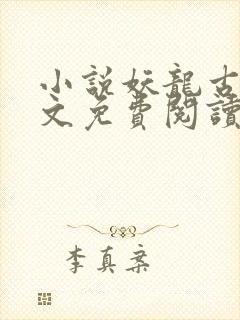 小說妖龍古
文免費閱讀
李真案